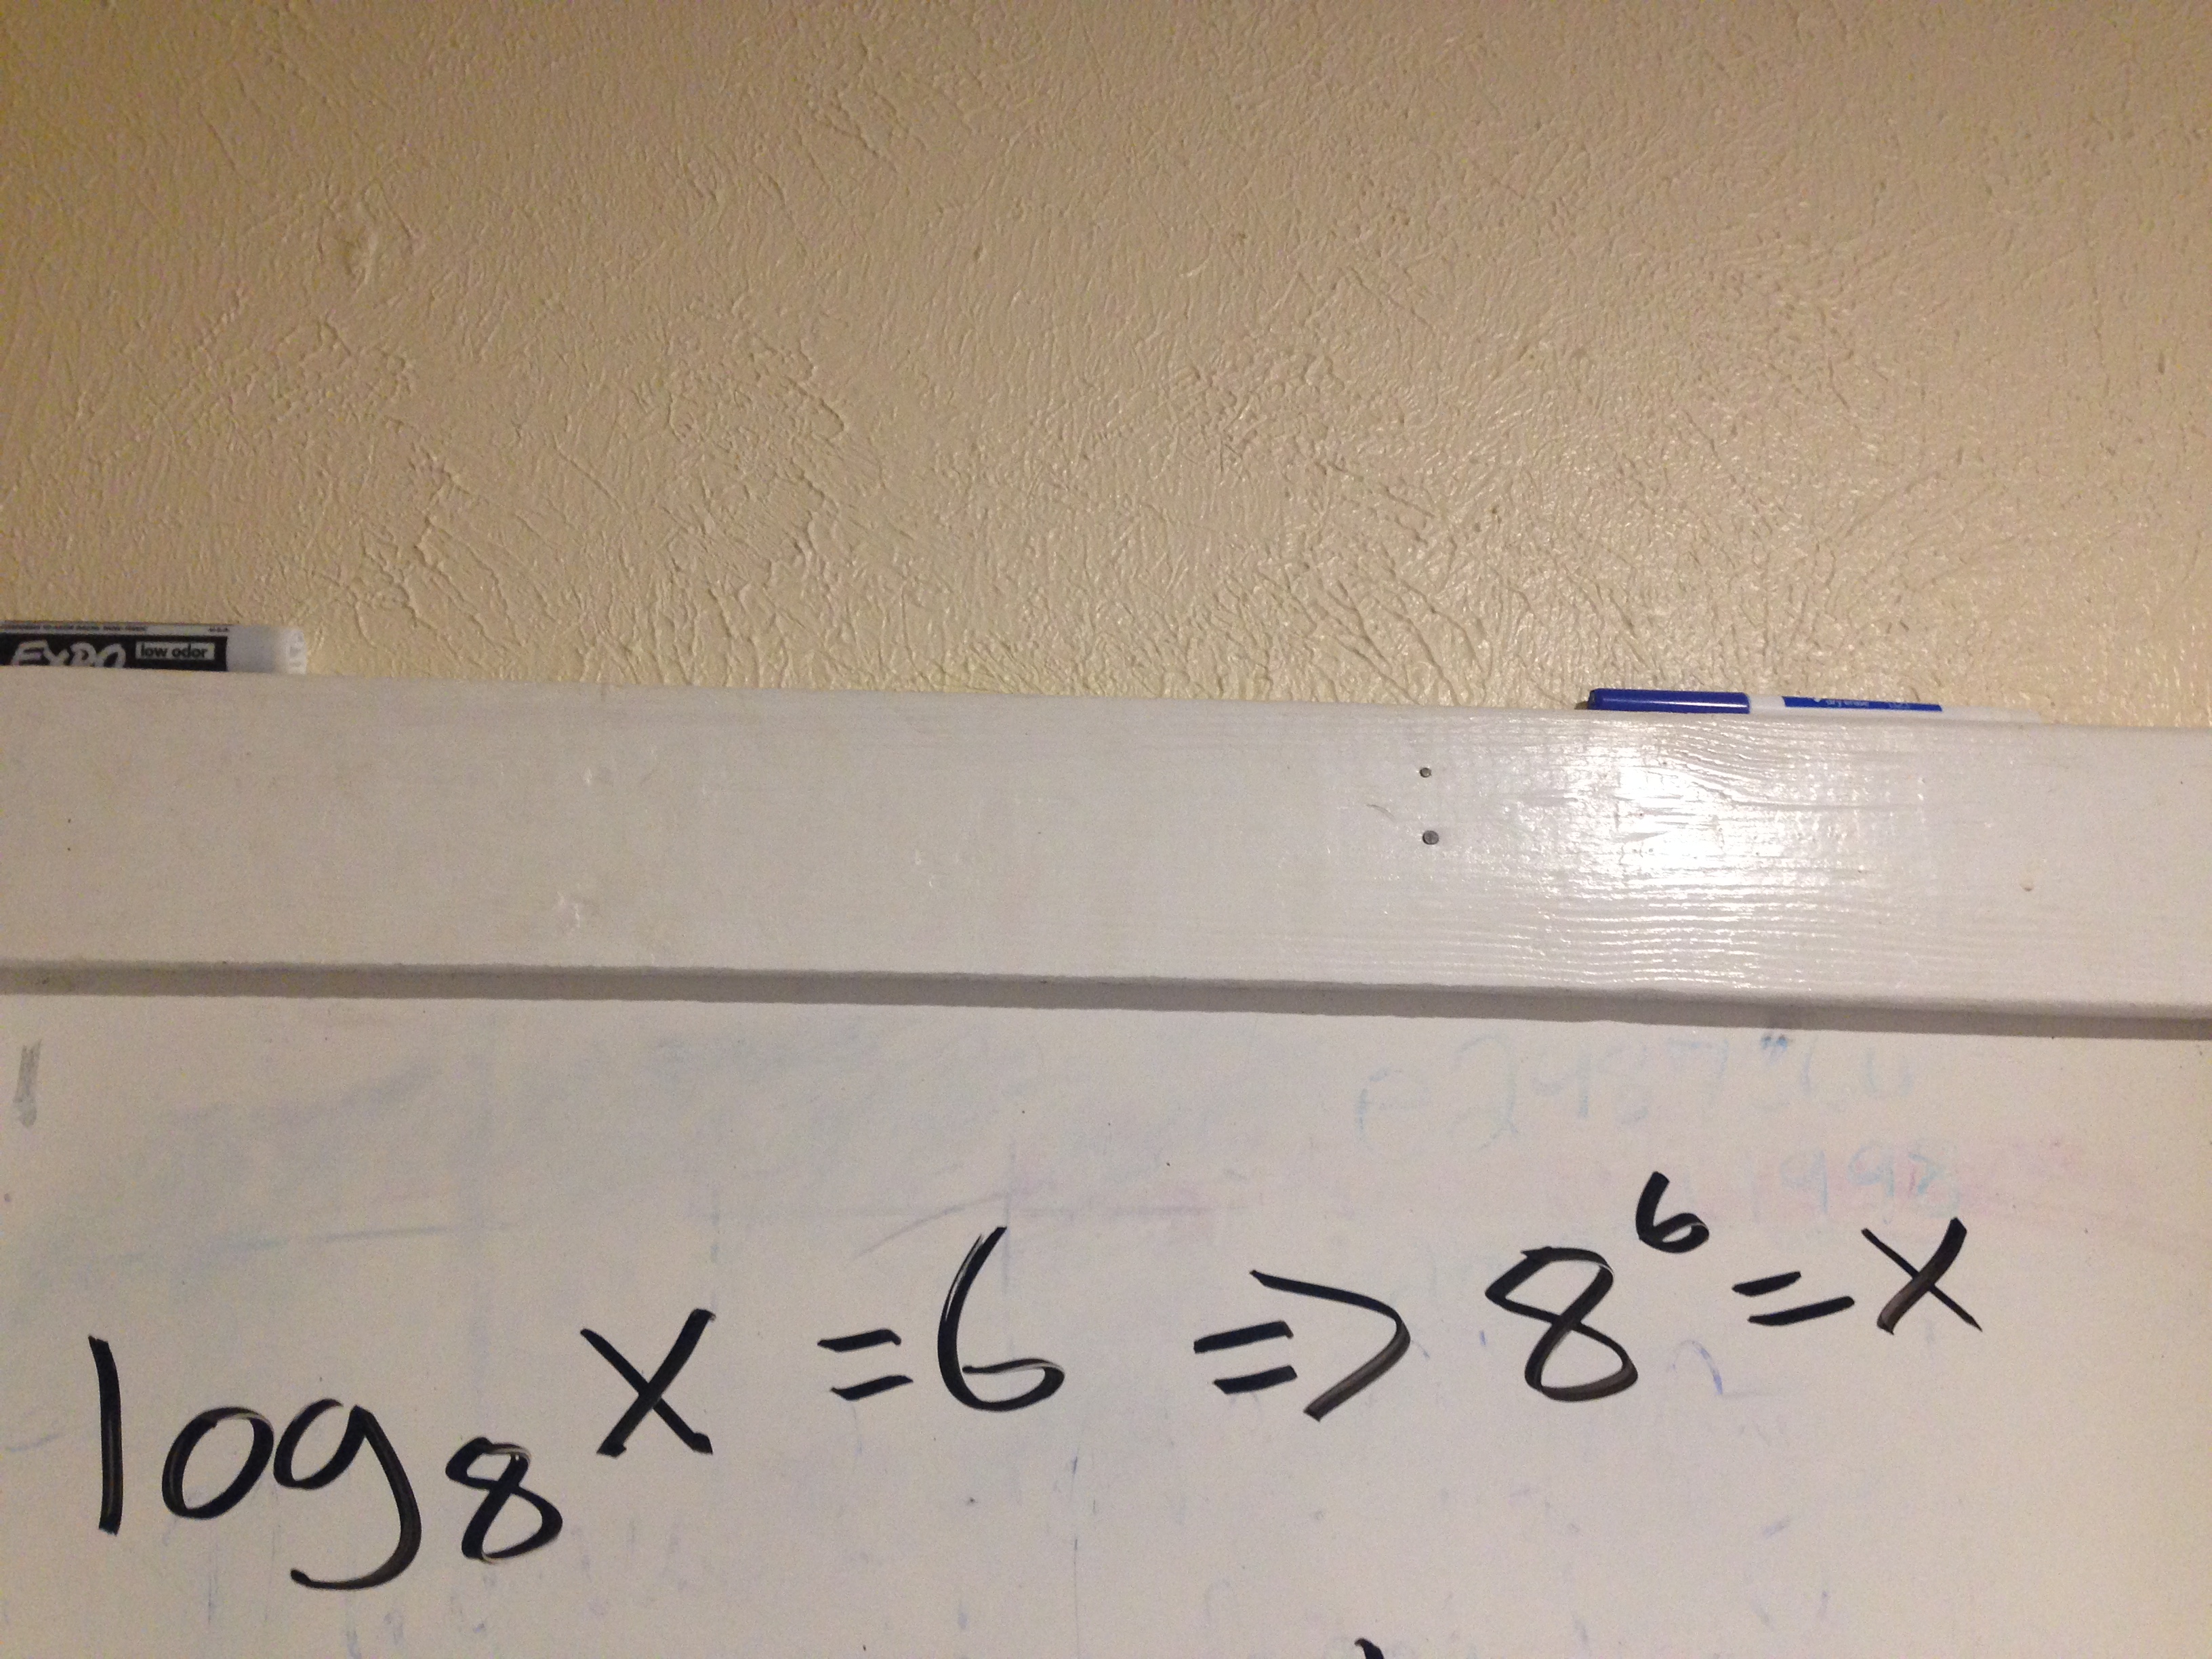 EXPO low odor
log₈ x = 6 => 8⁶ = x